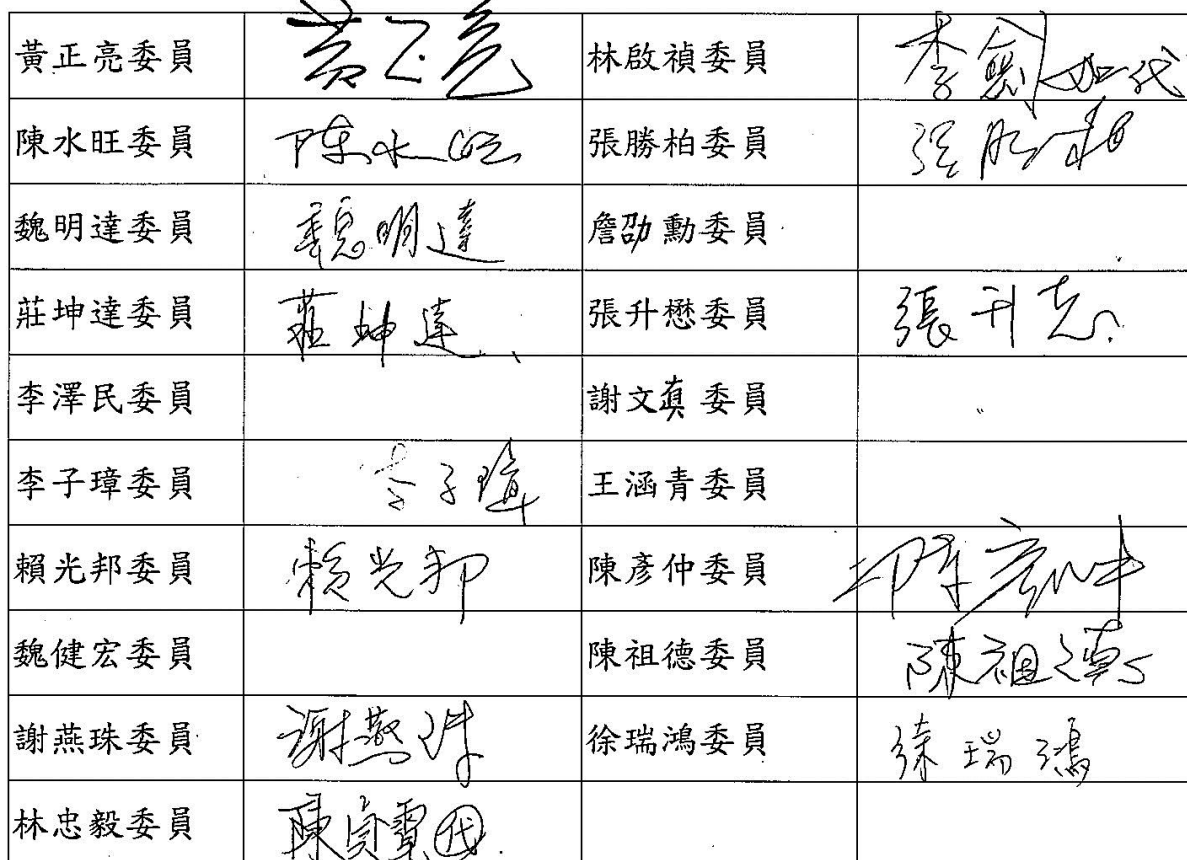 黃正亮委員 黃正亮 林啟禎委員 李劍如代
陳水旺委員 陳水旺 張勝柏委員 張勝柏
魏明達委員 魏明達 詹劭勳委員
莊坤達委員 莊坤達 張升懋委員 張升懋
李澤民委員 謝文真委員
李子璋委員 李子璋 王涵青委員
賴光邦委員 賴光邦 陳彥仲委員 陳彥仲
魏健宏委員 陳祖德委員 陳祖德
謝燕珠委員 謝燕珠 徐瑞鴻委員 徐瑞鴻
林忠毅委員 陳貞 代